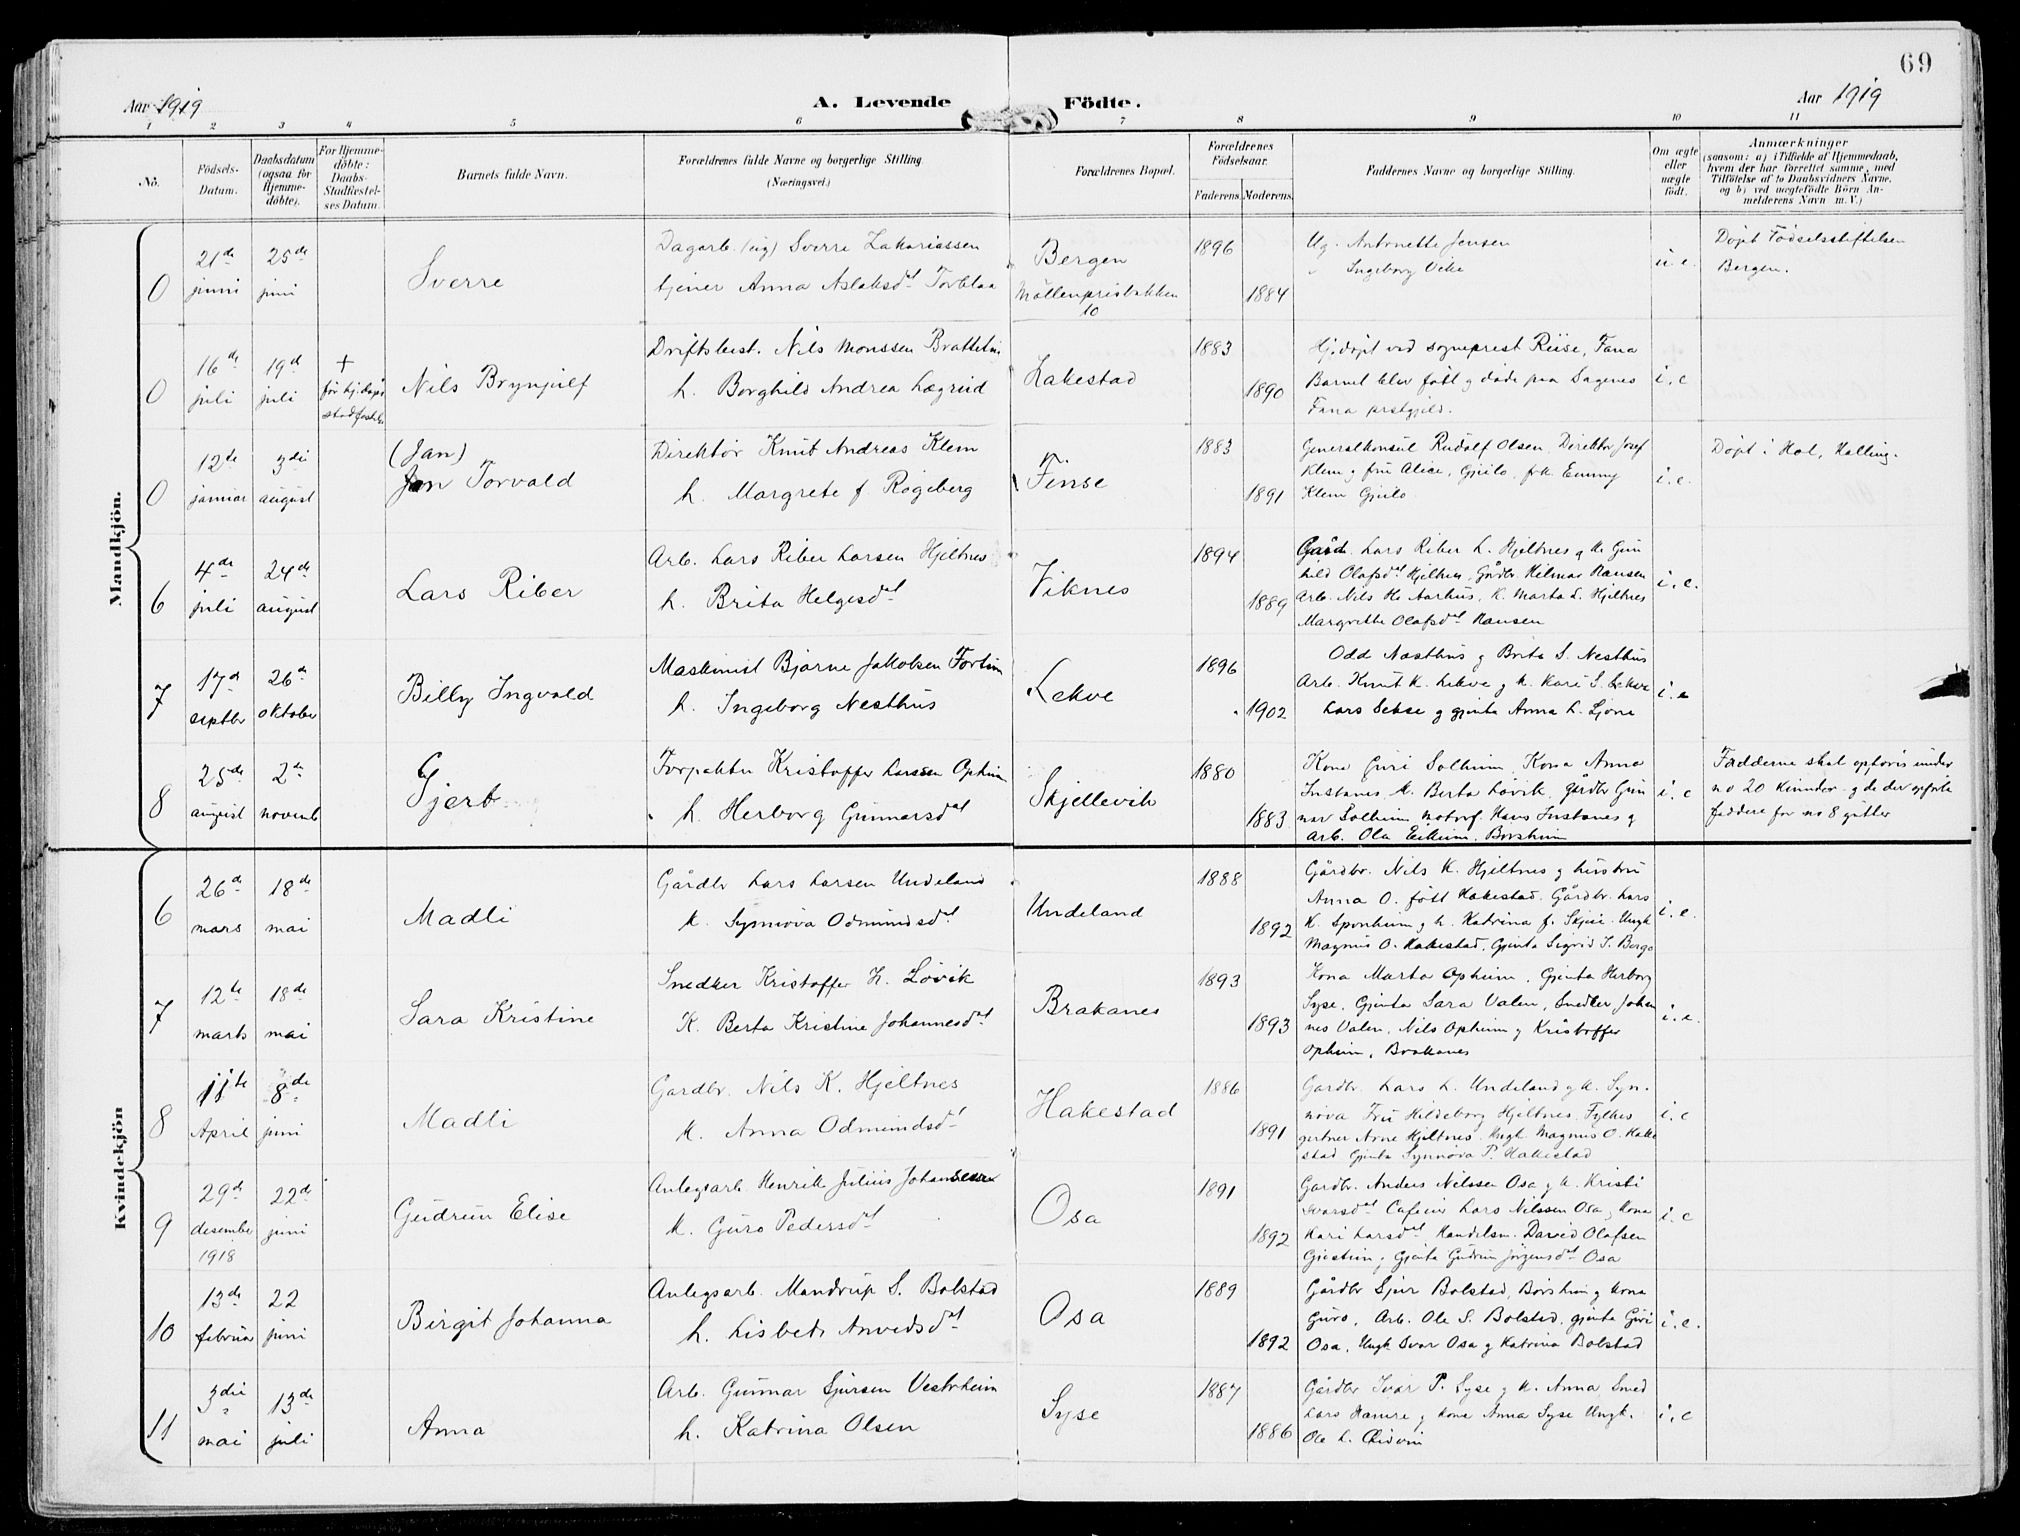 69
Aar 1919
A. Levende Födte.
Aar 1919
1 2 3 4 5 6 7 8 9 10 11
No.
Födsels-Datum.
Daabsdatum (ogsaa for Hjemme-döbte).
For Hjemme-döbte: Daabs-Stadfæstel-ses Datum.
Barnets fulde Navn.
Forældrenes fulde Navne og borgerlige Stilling (Næringsvei.)
Forældrenes Bopæl.
Forældrenes Födselsaar.
Faderens. Moderens.
Faddernes Navne og borgerlige Stilling.
Om ægte eller uægte födt.
Anmærkninger
(saasom: a) i Tilfælde af Hjemmedaab, hvem der har forrettet samme, med Tilföielse af to Daabsvidners Navne, og b) ved uægtefödte Börn An-melderens Navn m. V.)
Mandkjön.
0 21de juni 25de juni Sverre
Dagarb. (ug) Sverre Zakariassen
tjener Anna Aslaksdat Torblaa
Bergen
Möllenprisbakken
10
1896
1884
Ug. Antonette Jensen
" Ingeborg Vike
u.e.
Döpt Födselsstiftelsen
Bergen.
0 16de juli 19d juli
+
før hj.døps
stadfestelse
Nils Brynjulf
Driftsbest. Nils Monssen Brattetun
h. Borghild Andrea Lægrid
Lakestad
1883
1890
Hj.døpt ved sogneprest Riise, Fana
Barnet blev født og døde paa Sagenes
Fana prstgjeld.
i.e
0 12te januar 3die august
(Jan)
Jon Torvald
Direktør Knut Andreas Klem
h. Margrete f. Rogeberg
Finse
1883
1891
Generalkonsul Rudolf Olsen, Direktør Josef
Klem og fru Alice, Gjeilo, frk. Emmy
Klem Gjeilo
i.e.
Døpt i Hol, Halling.
6 4de juli 24de august Lars Riber
Arb. Lars Riber Larsen Hjeltnes
h. Brita Helgesdat
Viknes
1894
1889
Gaard. Lars Riber L. Hjeltnes og k. Gun
hild Olafsdat Hjeltnes, Gårdbr. Hilmar Hansen
Arb. Nils He Aarhus, K. Marta L. Hjeltnes
Margrethe Olafsdat Hansen
i.e.
7 17d septbr 26de oktober Billy Ingvald
Maskinist Bjarne Jakobsen Fortun
h. Ingeborg Nesthus
Lekve
1896
1902
Odd Næsthus og Brita S. Nesthus
Arb. Knut K. Lekve og k. Kari S. Lekve
Lars Sekse og gjenta Anna L. Ljone
i.e
8 25de august 2de novemb Gjert
Forpakter Kristoffer Larssen Opheim
h. Herborg Gunnarsdat
Skjellevik
1880
1883
Kone Guri Solheim, Kona Anna
Instanes, K. Berta Løvik, gårdbr Gun
nar Solheim motorf. Hans Instanes og
Arb. Ola Eikum. Borsheim
i.e
Fadderne skal opføris under
no 20 kvinder og de der opførte
faddere for no 8 gutter
Kvindekjön
6 26de mars 18de mai Madli
Gårdbr Lars Larsen Undeland
k. Synnøva Odmundsdat
Undeland
1888
1892
Gårdbr. Nils K. Hjeltnes og hustru
Anna O. født Hakestad. Gårdbr. Lars
K. Sponheim og h. Katrina f. Skjeie. Ungk
Magnus O. Hakestad, Gjenta Sigrid S. Berge
i.e.
7 12te marts 18de mai Sara Kristine
Snedker Kristoffer H. Løvik
K. Berta Kristine Johannesdat
Brakanes
1893
1893
Kona Marta Opheim, Gjenta Herborg
Syse, Gjenta Sara Valen, Snedker Johan
nes Valen, Nils Opheim og Kristoffer
Opheim, Brakanes
i.e.
8 11te April 8de juni Madli
Gardbr. Nils K. Hjeltnes
k. Anna Odmundsdt
Hakestad
1886
1891
Gardbr. Lars L. Undeland og k. Syn-
nøva Fru Hildeborg Hjeltnes, Fylkes
gartner Arne Hjeltnes. Ungk Magnus O. Hake
stad Gjenta Synnøva P. Hakestad
i.e
9 29d desember 1918 22de juni Gudrun Elise
Anlegsarb. Henrik Julius Johannessen
k. Guro Pedersdat
Osa
1891
1892
Gardbr. Anders Nilssen Osa og k. Kristi
Ivarsdat Cafeeier Lars Nilssen Osa, kona
Kari Larsdat Handelsm. David Olafsen
Gjestrim, Gjenta Gudrun Jørgensdat Osa
i.e
10 13de februar 22 juni Birgit Johanna
Anlegsarb. Mandrup S. Bolstad
h. Lisbet Arvedsdat
Osa
1889
1892
Gårdbr Sjur Bolstad, Borsheim og kona
Guro, Arb. Ole S. Bolstad, gjenta Guri
Osa, Ungk Ivar Osa og Katrina Bolstad
i.e.
11 3die mai 13de juli Anna
Arb. Gunnar Sjursen Vestrheim
h. Katrina Olsen
Syse
1887
1886
Gårdbr Ivar P. Syse og k. Anna, Smed
Lars Hamre og kone Anna Syse Ungk.
Ole L.
i.e